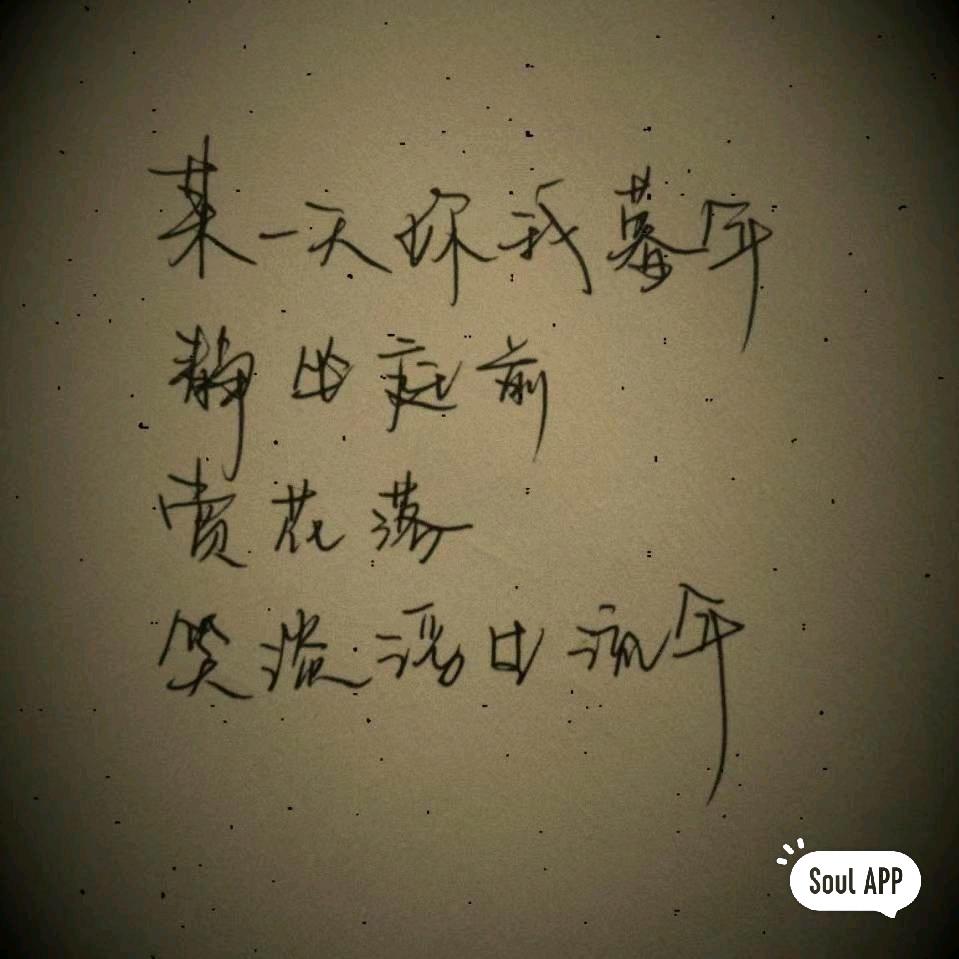 某一天你我暮年
静坐庭前
赏花落
笑谈浮生流年
Soul APP